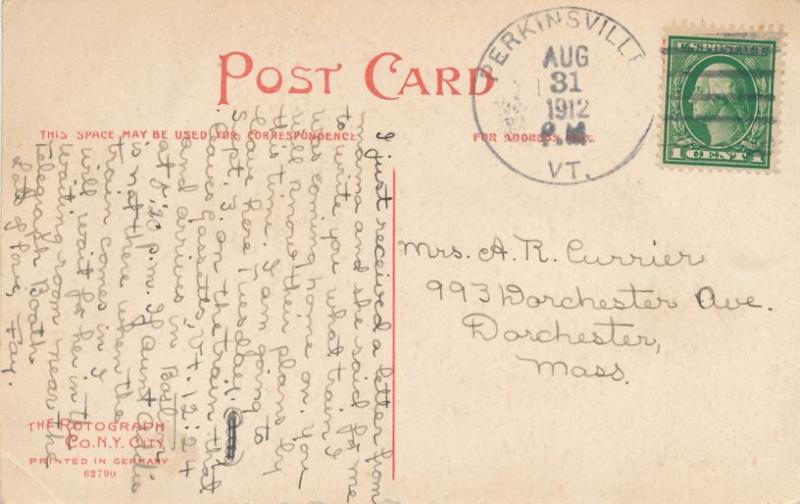 POST CARD
THIS SPACE MAY BE USED FOR CORRESPONDENCE
FOR ADDRESS
PERKINSVILLE
AUG
31
1912
P.M
VT.
U.S. POSTAGE
1 CENT 1
Mrs. A. R. Currier
993 Dorchester Ave.
Dorchester,
Mass.
I just received a letter from
mama and she said for me
to write you what train I
was coming home on. You
will know their plans by
this time. I am going to
leave here Tuesday,
Sept. 3. on the train that
leaves Gassetts, Vt. 12:24
and arrives in
at 5:20 p.m. If aunt
is not there when the
train comes in I
will wait for her in the
waiting room near the
Telegraph Booth.
Lots of love, Fay.
THE ROTOGRAPH
CO. N.Y. CITY
PRINTED IN GERMANY
62790